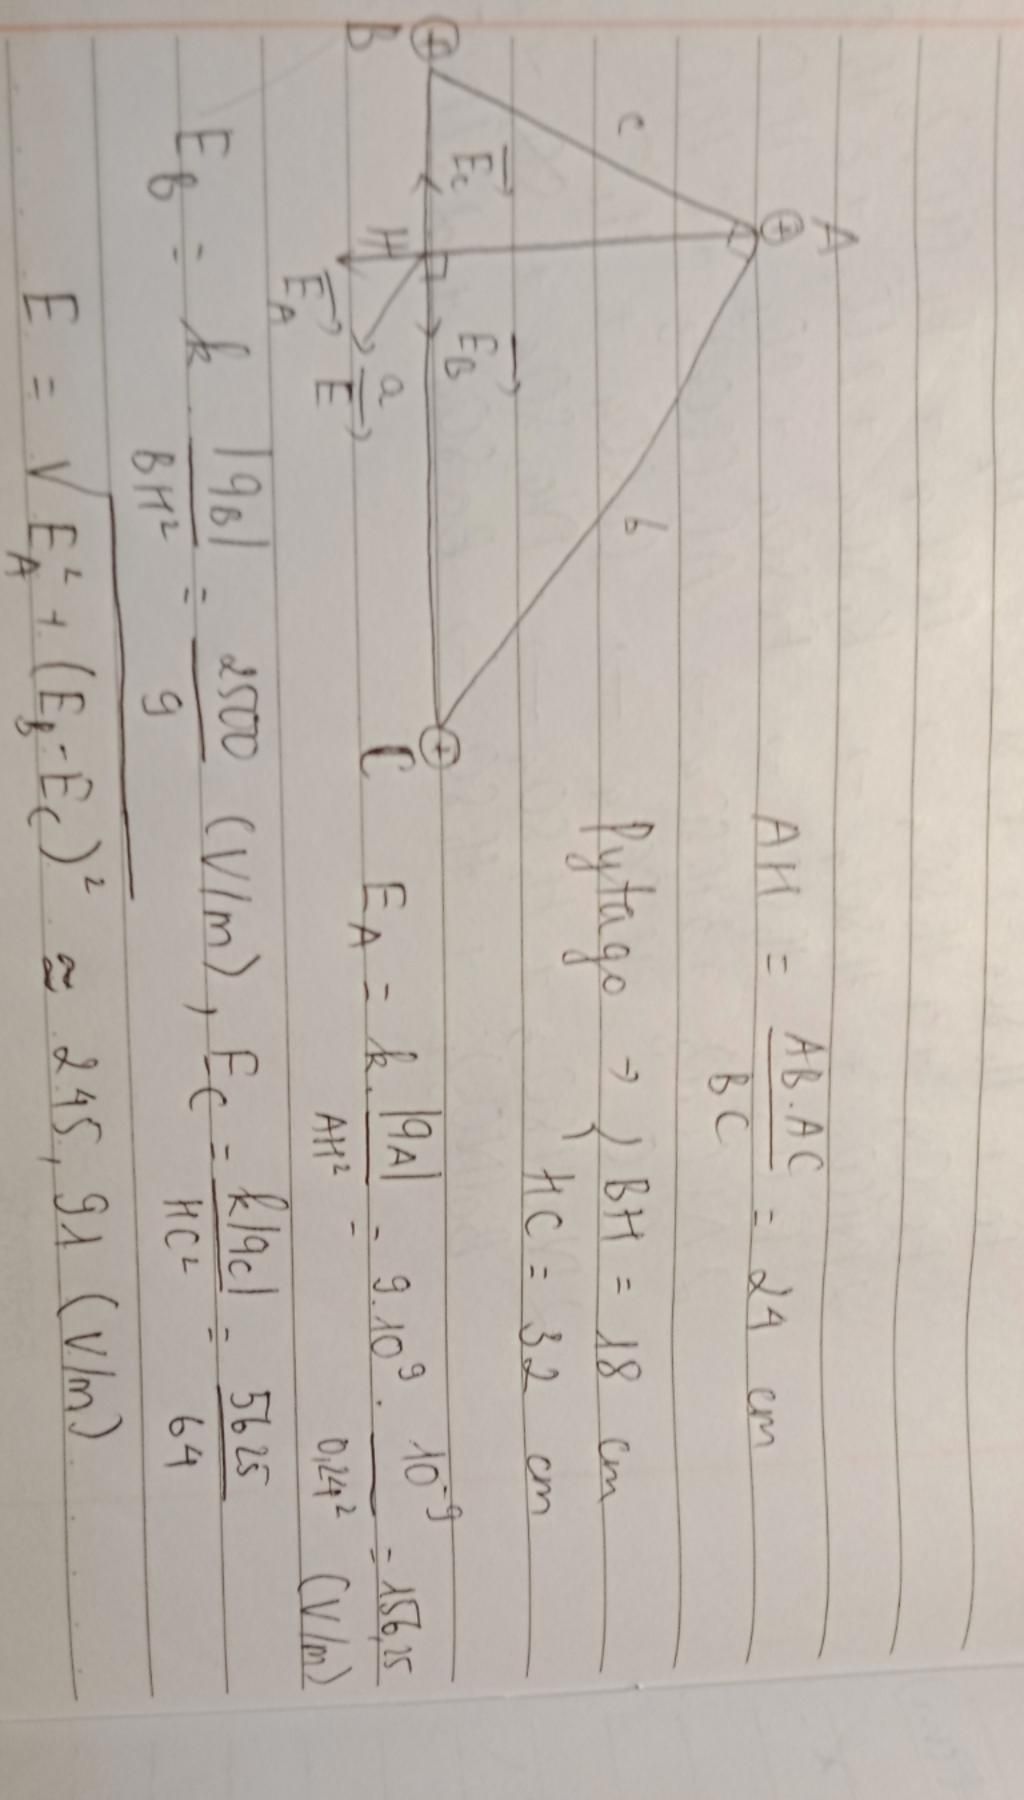 A
c
b
AH = AB.AC / BC = 24 cm
Pytago → { BH = 18 cm
HC = 32 cm
B
E⃗c
H
E⃗B
C
a
E⃗A
E⃗
EA = k. |qA| / AH² = 9.10⁹ . 10⁻⁹ / 0,24² = 156,25 (V/m)
EB = k |qB| / BH² = 2500 / 9 (V/m), EC = k|qC| / HC² = 5625 / 64
E = √EA² + (EB - EC)² ≃ 245,91 (V/m)